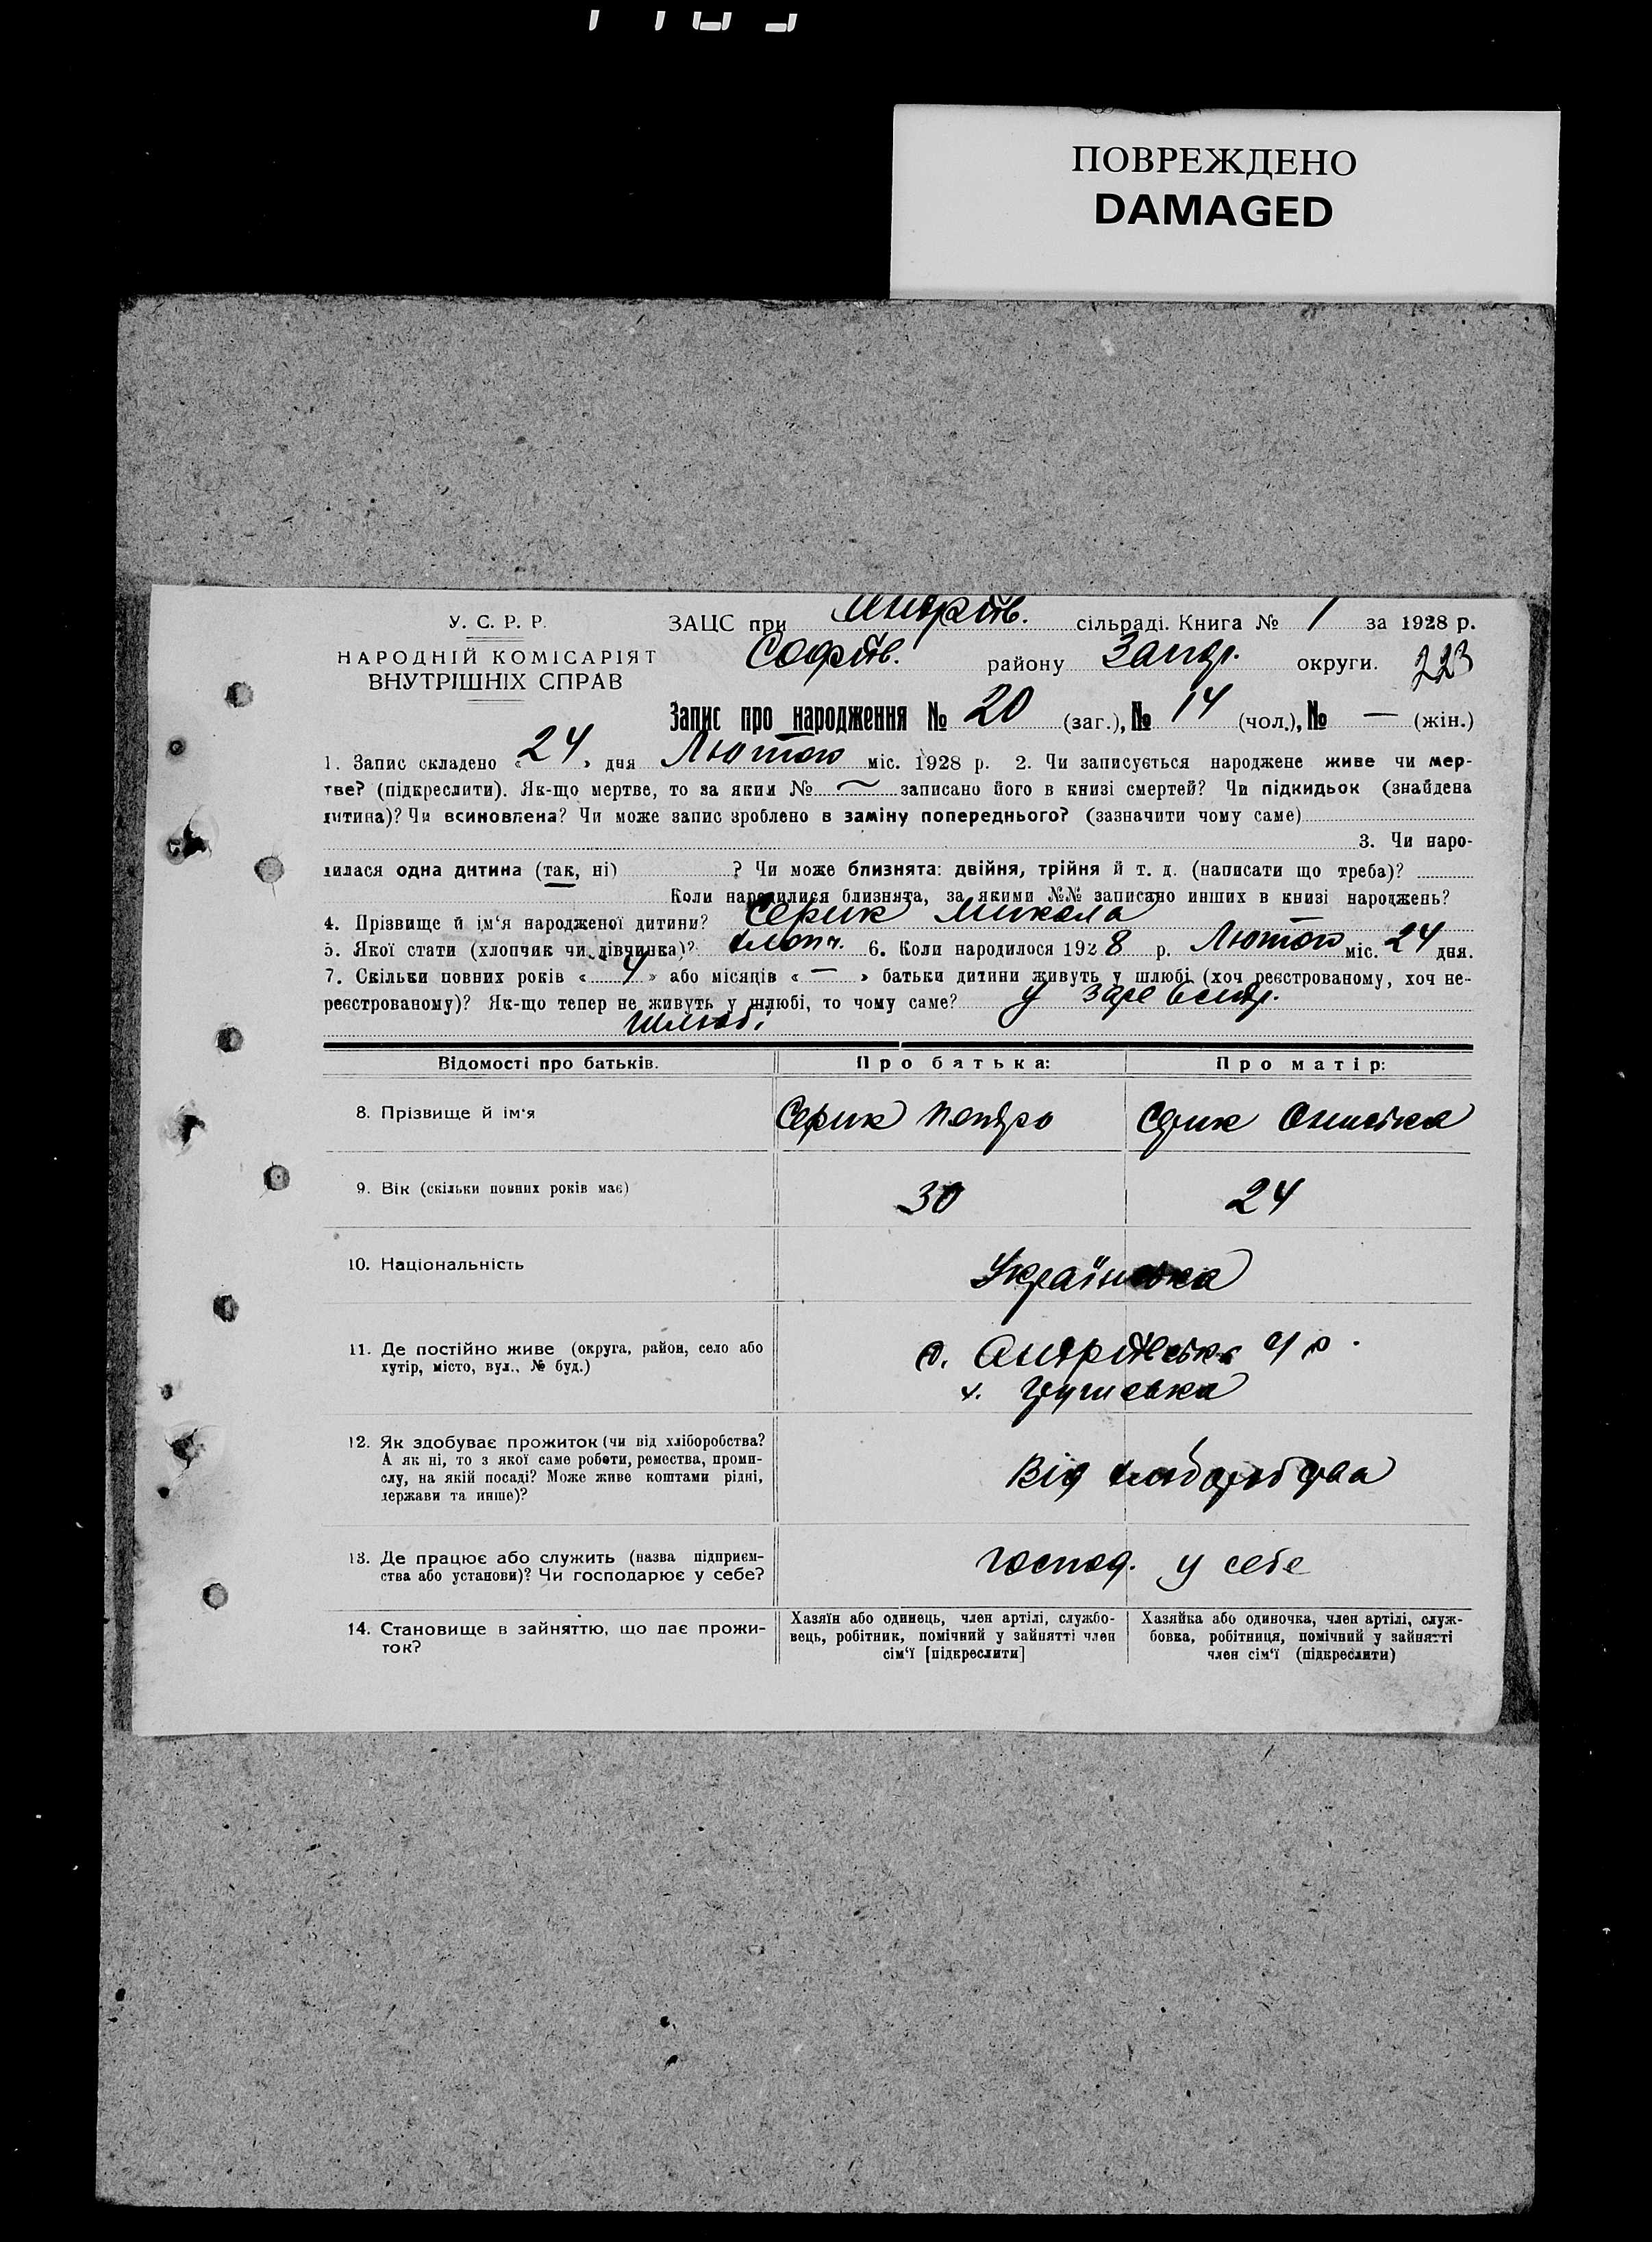 ПОВРЕЖДЕНО
DAMAGED
У. С. Р. Р.
НАРОДНІЙ КОМІСАРІЯТ
ВНУТРІШНІХ СПРАВ
ЗАЦС при Андріїв. сільраді. Книга № 1 за 1928 р.
Софіїв. району Запор. округи. 223
Запис про народження № 20 (заг.), № 14 (чол.), № — (жін.)
1. Запис складено « 24 » дня Лютого міс. 1928 р. 2. Чи записується народжене живе чи мер-
тве? (підкреслити). Як-що мертве, то за яким № — записано його в книзі смертей? Чи підкидьок (знайдена
дитина)? Чи всиновлена? Чи може запис зроблено в заміну попереднього? (зазначити чому саме)
3. Чи наро-
дилася одна дитина (так, ні) ? Чи може близнята: двійня, трійня й т. д. (написати що треба)?
Коли народилися близнята, за якими №№ записано инших в книзі народжень?
4. Прізвище й ім‘я народженої дитини? Серик Микола
5. Якої стати (хлопчик чи дівчинка)? хлопч. 6. Коли народилося 1928 р. Лютого міс. 24 дня.
7. Скільки повних років « 4 » або місяців « — » батьки дитини живуть у шлюбі (хоч реєстрованому, хоч не-
реєстрованому)? Як-що тепер не живуть у шлюбі, то чому саме? у
шлюбі
Відомості про батьків. Про батька: Про матір:
8. Прізвище й ім‘я Серик Петро Серик
9. Вік (скільки повних років має) 30 24
10. Національність Українська
11. Де постійно живе (округа, район, село або
хутір, місто, вул., № буд.)
х.
12. Як здобуває прожиток (чи від хліборобства?
А як ні, то з якої саме роботи, ремества, проми-
слу, на якій посаді? Може живе коштами рідні,
держави та инше)?
Від хліборобства
13. Де працює або служить (назва підприєм-
ства або установи)? Чи господарює у себе?
господ. у себе
14. Становище в зайняттю, що дає прожи-
ток?
Хазяїн або одинець, член артілі, службо-
вець, робітник, помічний у зайнятті член
сім‘ї [підкреслити]
Хазяйка або одиночка, член артілі, служ-
бовка, робітниця, помічний у зайнятті
член сім‘ї (підкреслити)